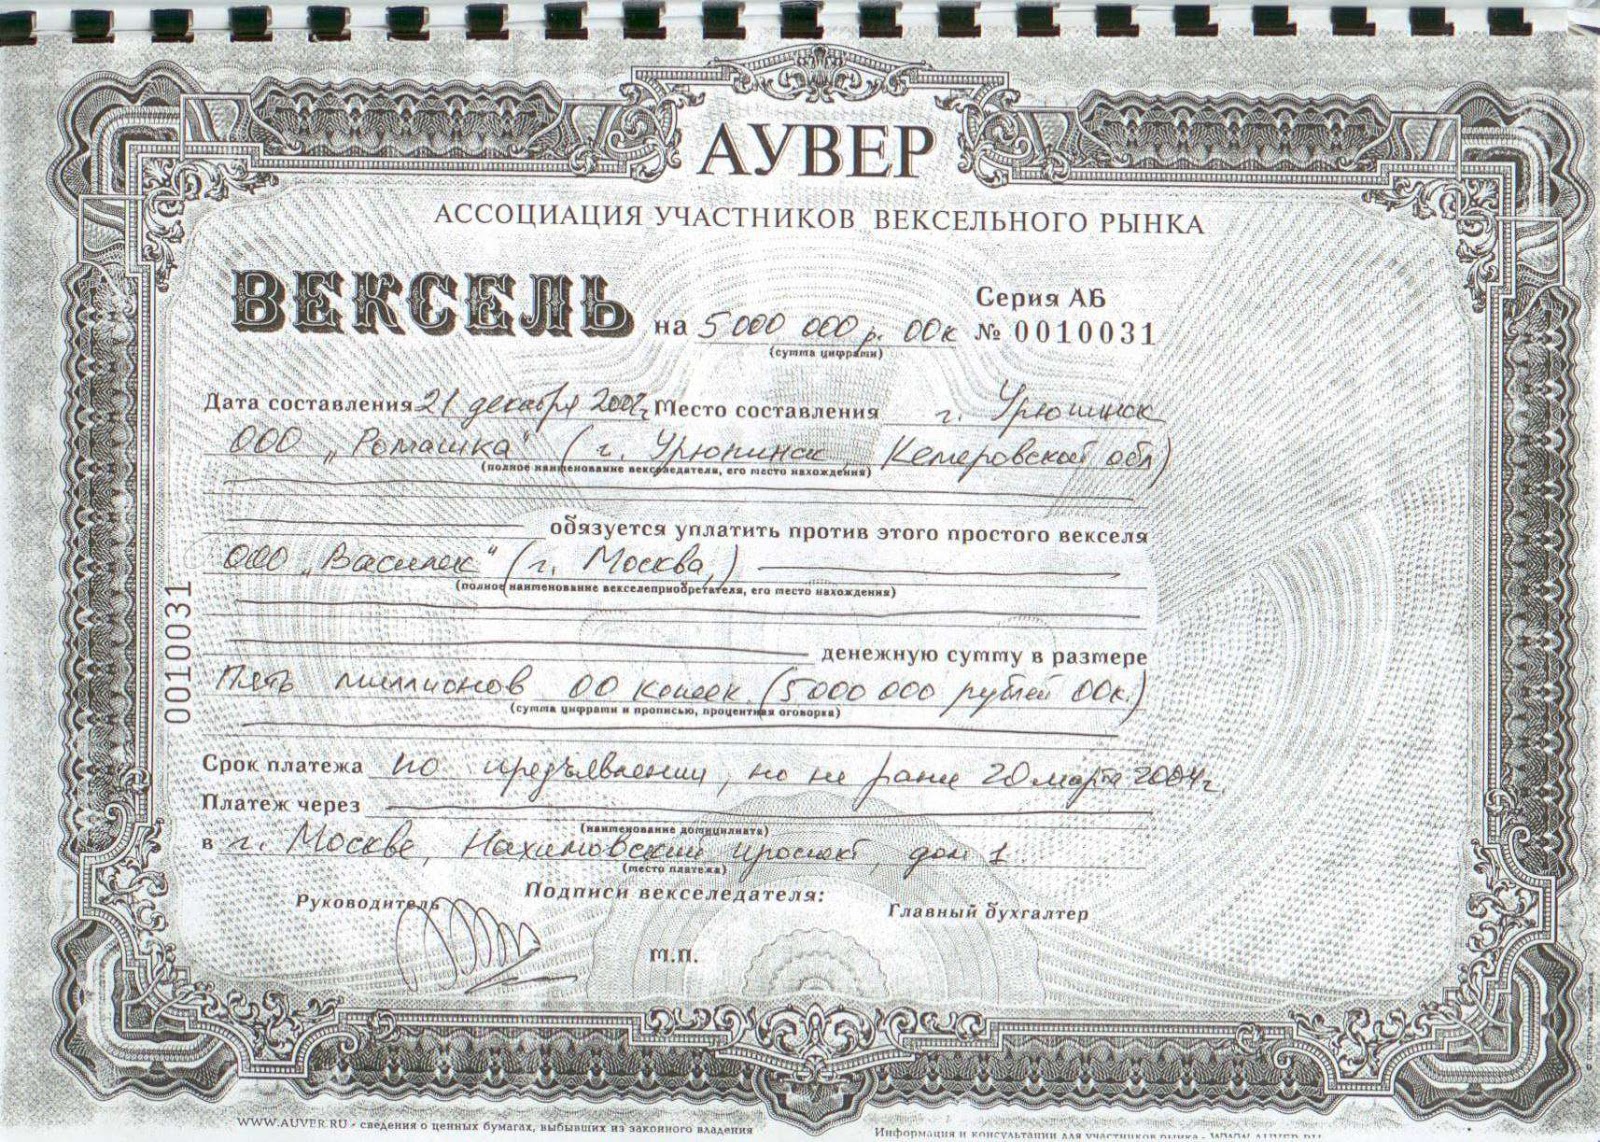 АУВЕР
АССОЦИАЦИЯ УЧАСТНИКОВ ВЕКСЕЛЬНОГО РЫНКА
ВЕКСЕЛЬ на 5 000 000 р. 00к
Серия АБ
№ 0010031
(сумма цифрами)
Дата составления 21 декабря Место составления г. Урюпинск
ООО „Ромашка" (г. Урюпинск, Кемеровской обл)
(полное наименование векселедателя, его место нахождения)
обязуется уплатить против этого простого векселя
ООО „Василек" (г. Москва,)
(полное наименование векселеприобретателя, его место нахождения)
0010031
денежную сумму в размере
Пять миллионов 00 копеек (5 000 000 рублей 00к.)
(сумма цифрами и прописью, процентная оговорка)
Срок платежа по предъявлении, но не ранее 20 марта 2004г.
Платеж через
(наименование домицилиата)
в г. Москве, Нахимовский проспект, дом 1
(место платежа)
Подписи векселедателя:
Руководитель
Главный бухгалтер
М.П.
WWW.AUVER.RU - сведения о ценных бумагах, выбывших из законного владения
Информация и консультации для участников рынка - WWW.AUVER.RU